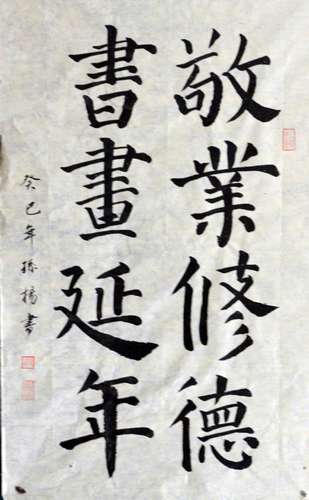 敬業修德
書畫延年
癸巳年孫揚書